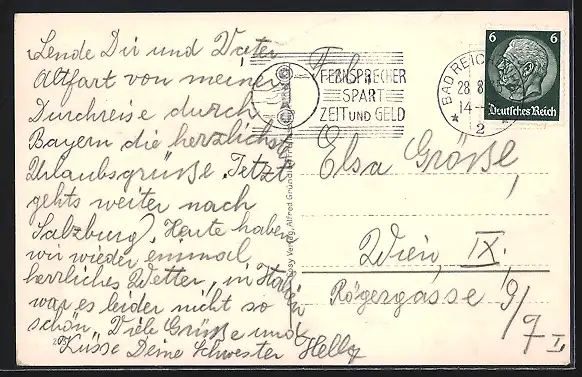 Sende Dir und Vater
Altfart von meiner
Durchreise durch
Bayern die herzlichste
Urlaubsgrüße. Jetzt
gehts weiter nach
Salzburg. Heute haben
wir wieder einmal
herrliches Wetter, in Italien
war es leider nicht so
schön. Viele Grüße und
Küsse Deine Schwester Helly
FERNSPRECHER
SPART
ZEIT UND GELD
BAD REICHENHALL
28.8.
14-
* 2 *
6 6
Deutsches Reich
Elsa Größl,
Wien, IX.
Rögergasse 9/
7 I
Verlag, Alfred Gründler